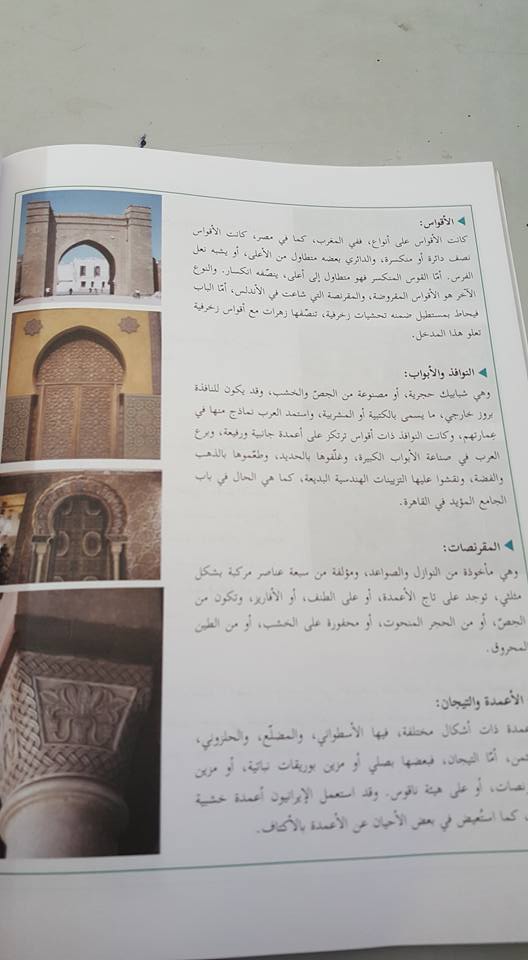 الأقواس:
كانت الأقواس على أنواع، ففي المغرب، كما في مصر، كانت الأقواس
نصف دائرة أو منكسرة، والدائري بعضه متطاول من الأعلى، أو يشبه نعل
الفرس. أمّا القوس المنكسر فهو متطاول إلى أعلى، ينصّفه انكسار. والنوع
الآخر هو الأقواس المفروضة، والمقرنصة التي شاعت في الأندلس، أمّا الباب
فيحاط بمستطيل ضمنه تحشيات زخرفية، تنصّفها زهرات مع أقواس زخرفية
تعلو هذا المدخل.
النوافذ والأبواب:
وهي شبابيك حجرية، أو مصنوعة من الجصّ والخشب، وقد يكون للنافذة
بروز خارجي، ما يسمى بالكتبية أو المشربية، واستمد العرب نماذج منها في
عمارتهم، وكانت النوافذ ذات أقواس ترتكز على أعمدة جانبية ورفيعة، وبرع
العرب في صناعة الأبواب الكبيرة، وغلّفوها بالحديد، وطعّموها بالذهب
والفضة، ونقشوا عليها التزيينات الهندسية البديعة، كما هي الحال في باب
الجامع المؤيد في القاهرة.
المقرنصات:
وهي مأخوذة من النوازل والصواعد، ومؤلفة من سبعة عناصر مركبة بشكل
مثلثي، توجد على تاج الأعمدة، أو على الطنف، أو الأفاريز، وتكون من
الجصّ، أو من الحجر المنحوت، أو محفورة على الخشب، أو من الطين
المحروق.
الأعمدة والتيجان:
ذات أشكال مختلفة، فيها الأسطواني، والمضلّع، والحلزوني،
أمّا التيجان، فبعضها بصلي أو مزين بوريقات نباتية، أو مزين
أو على هيئة ناقوس. وقد استعمل الإيرانيون أعمدة خشبية
كما استُعيض في بعض الأحيان عن الأعمدة بالأكتاف.